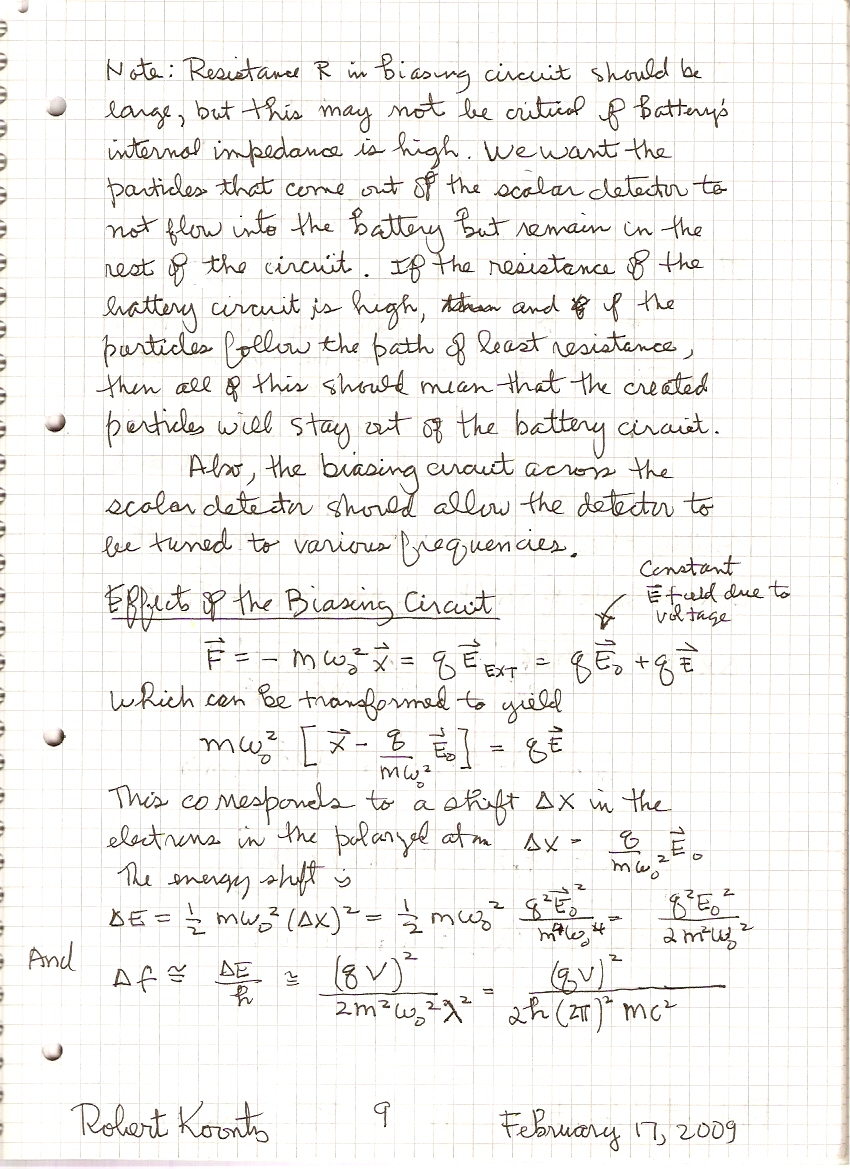 Note: Resistance R in biasing circuit should be
large, but this may not be critical if battery's
internal impedance is high. We want the
particles that come out of the scalar detector to
not flow into the battery but remain in the
rest of the circuit. If the resistance of the
battery circuit is high, and if the
particles follow the path of least resistance,
then all of this should mean that the created
particles will stay out of the battery circuit.
Also, the biasing circuit across the
scalar detector should allow the detector to
be tuned to various frequencies.
Constant
E⃗ field due to
voltage
Effects of the Biasing Circuit
F⃗ = - mω₀² x⃗ = q E⃗ EXT = q E⃗₀ + q E⃗
Which can be transformed to yield
mω₀² [ x⃗ - q/mω₀² E⃗₀ ] = q E⃗
This corresponds to a shift ΔX in the
electrons in the polarized atom ΔX = q/mω₀² E⃗₀
The energy shift is
ΔE = ½ mω₀² (ΔX)² = ½ mω₀² q²E⃗₀²/m²ω₀⁴ = q²E₀²/2m²ω₀²
And
Δf ≅ ΔE/ħ ≅ (qV)²/2m²ω₀²λ² = (qV)²/2ħ(2π)² mc²
Robert Koontz 9 February 17, 2009